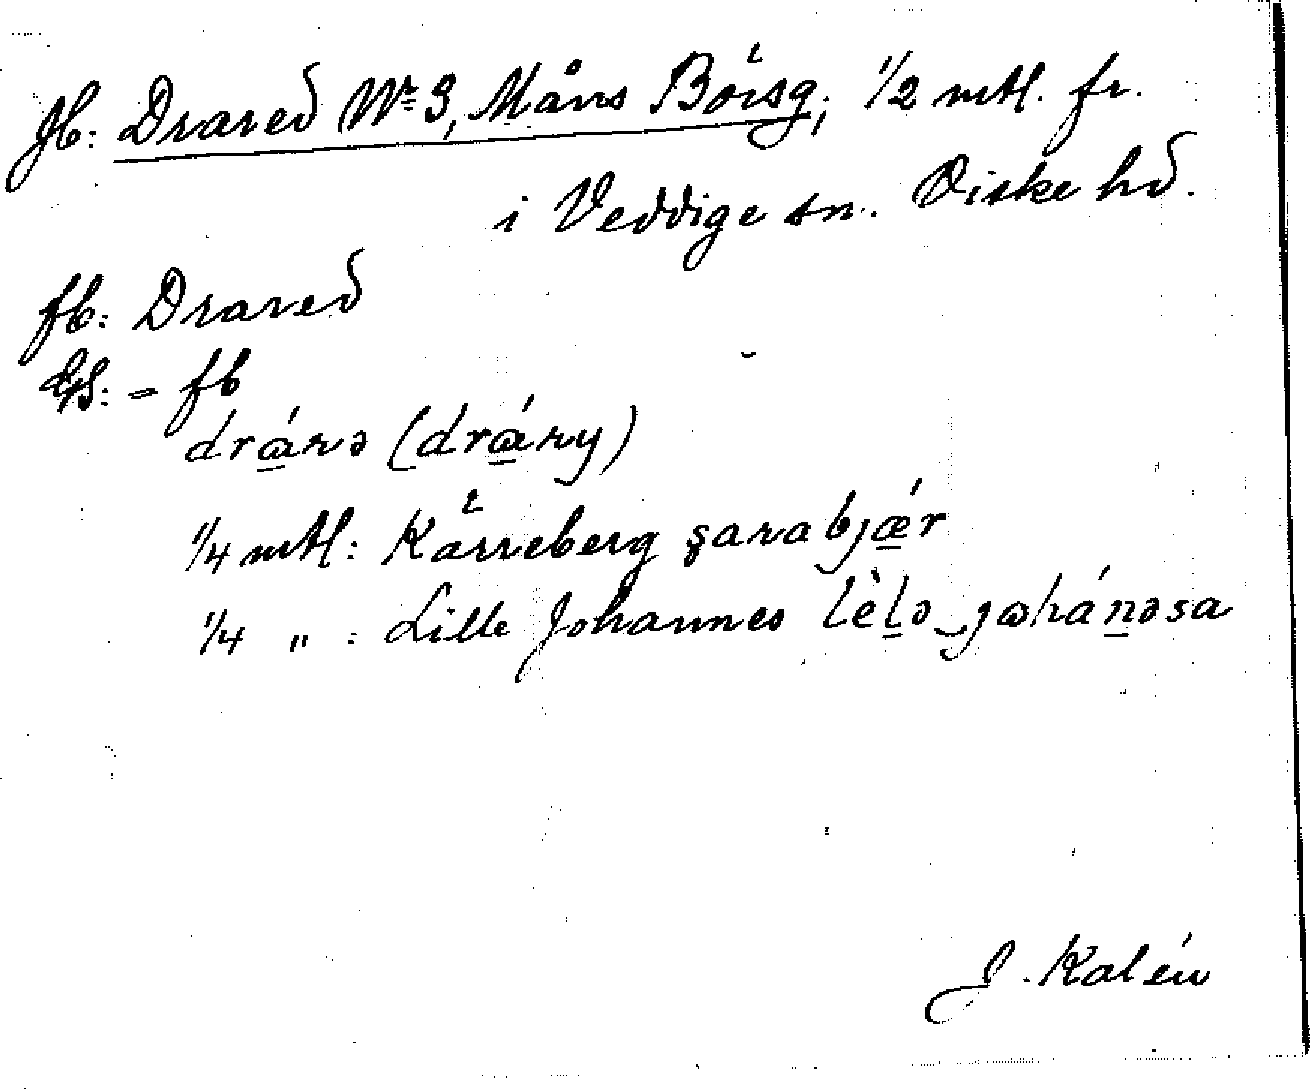 Jb: Drared Nr 3, Måns Börsg, 1/2 mtl. fr.
i Veddige sn. Viske hd.
fb: Drared
GS: = fb
drárə (dráry)
1/4 mtl: Kärreberg şarabjǽr
1/4 " : Lille Johannes lèlə jωhánəsa
J. Kalén